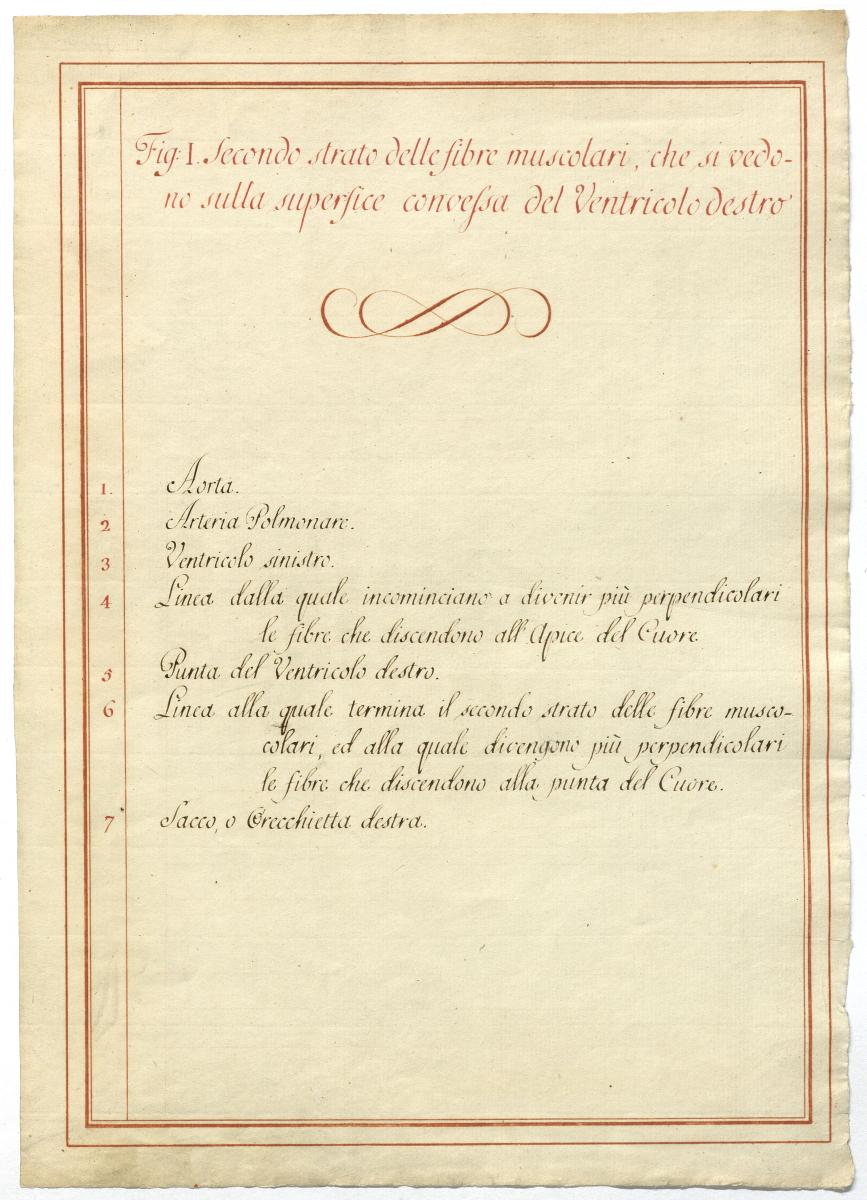 Fig: I. Secondo strato delle fibre muscolari, che si vedo-
no sulla superfice convessa del Ventricolo destro
1. Aorta.
2 Arteria Polmonare.
3 Ventricolo sinistro.
4 Linea dalla quale incominciano a divenir più perpendicolari
le fibre che discendono all'Apice del Cuore
5 Punta del Ventricolo destro.
6 Linea alla quale termina il secondo strato delle fibre musco-
colari, ed alla quale divengono più perpendicolari
le fibre che discendono alla punta del Cuore.
7 Sacco, o Orecchietta destra.